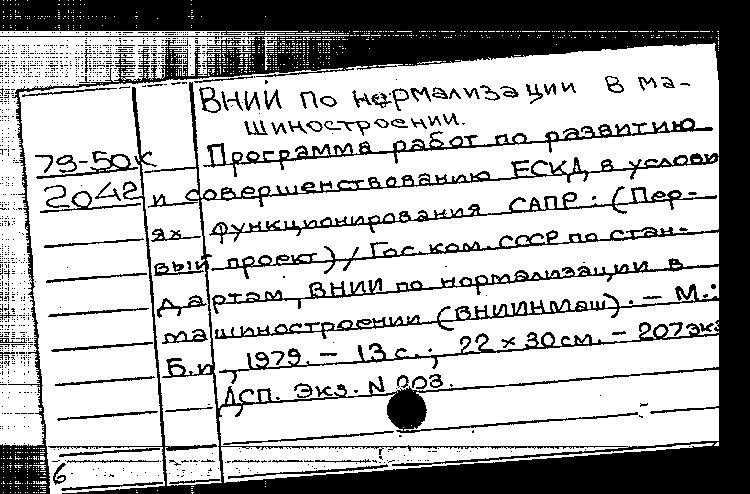 ВНИИ по нормализации в ма-
шиностроении.
79-50к Программа работ по развитию
2042 и совершенствованию ЕСКД в услови
ях функционирования САПР: (Пер-
вый проект) / Гос. ком. СССР по стан-
дартам, ВНИИ по нормализации в
машиностроении (ВНИИНМаш). – М.:
Б.и., 1979. – 13 с.; 22 × 30 см. – 207 экз
ДСП. Экз. N 003.
6